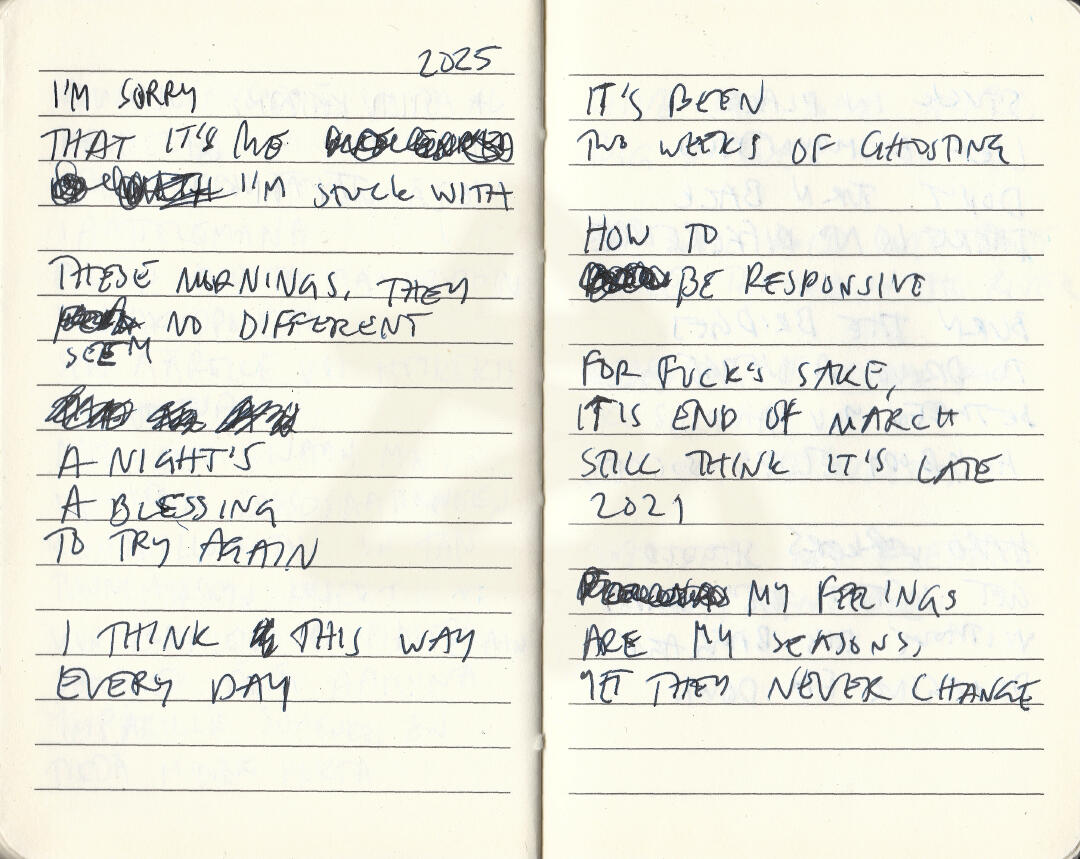 2025
I'M SORRY
THAT IT'S ME
I'M STUCK WITH
THESE MORNINGS, THEY
SEEM NO DIFFERENT
A NIGHT'S
A BLESSING
TO TRY AGAIN
I THINK THIS WAY
EVERY DAY
IT'S BEEN
TWO WEEKS OF GHOSTING
HOW TO
BE RESPONSIVE
FOR FUCK'S SAKE,
IT IS END OF MARCH
STILL THINK IT'S LATE
2021
MY FEELINGS
ARE MY SEASONS,
YET THEY NEVER CHANGE